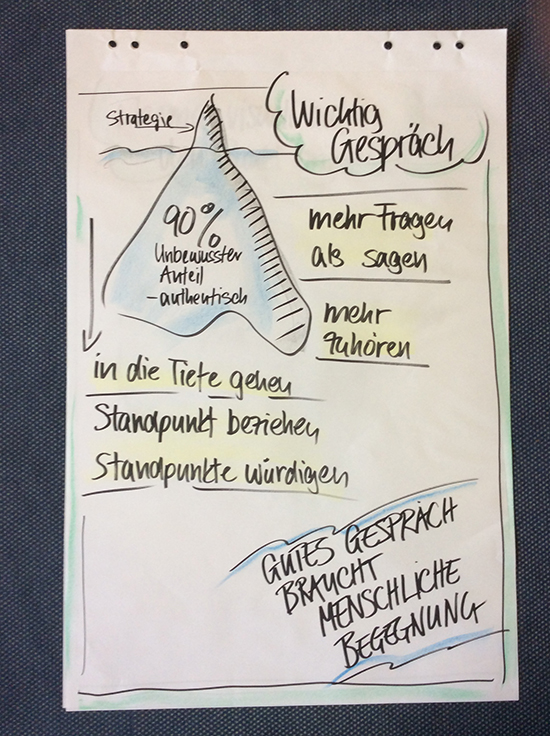 Wichtig
Gespräch
Strategie
90%
Unbewusster
Anteil
-authentisch
mehr Fragen
als sagen
mehr
zuhören
in die Tiefe gehen
Standpunkt beziehen
Standpunkte würdigen
GUTES GESPRÄCH
BRAUCHT
MENSCHLICHE
BEGEGNUNG